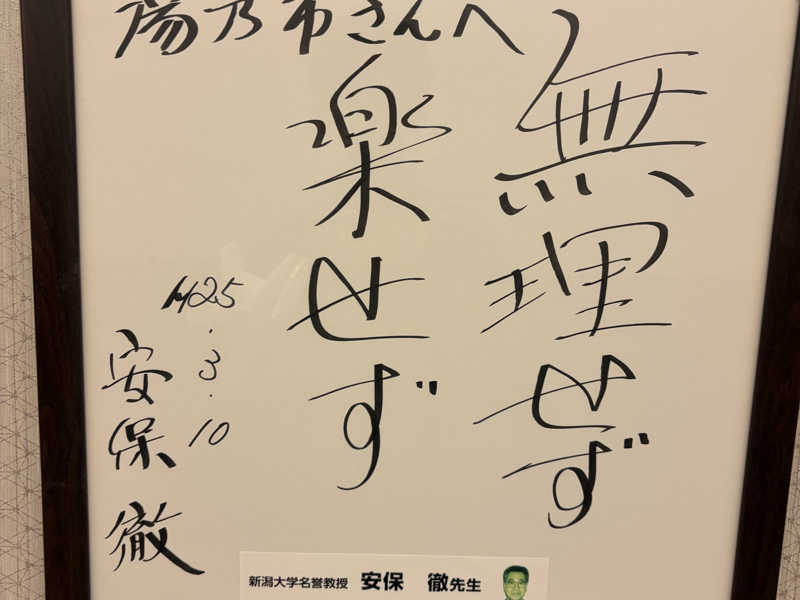 湯乃市さんへ
無理せず
楽せず
H25.3.10
安保徹
新潟大学名誉教授 安保 徹先生